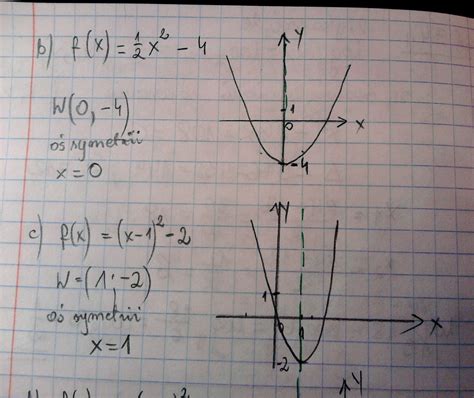 b) f(x) = ½x² - 4
W(0, -4)
oś symetrii
x = 0
Y
1
0
x
-4
c) f(x) = (x-1)² - 2
W = (1; -2)
oś symetrii
x = 1
Y
1
0
1
x
-2
Y